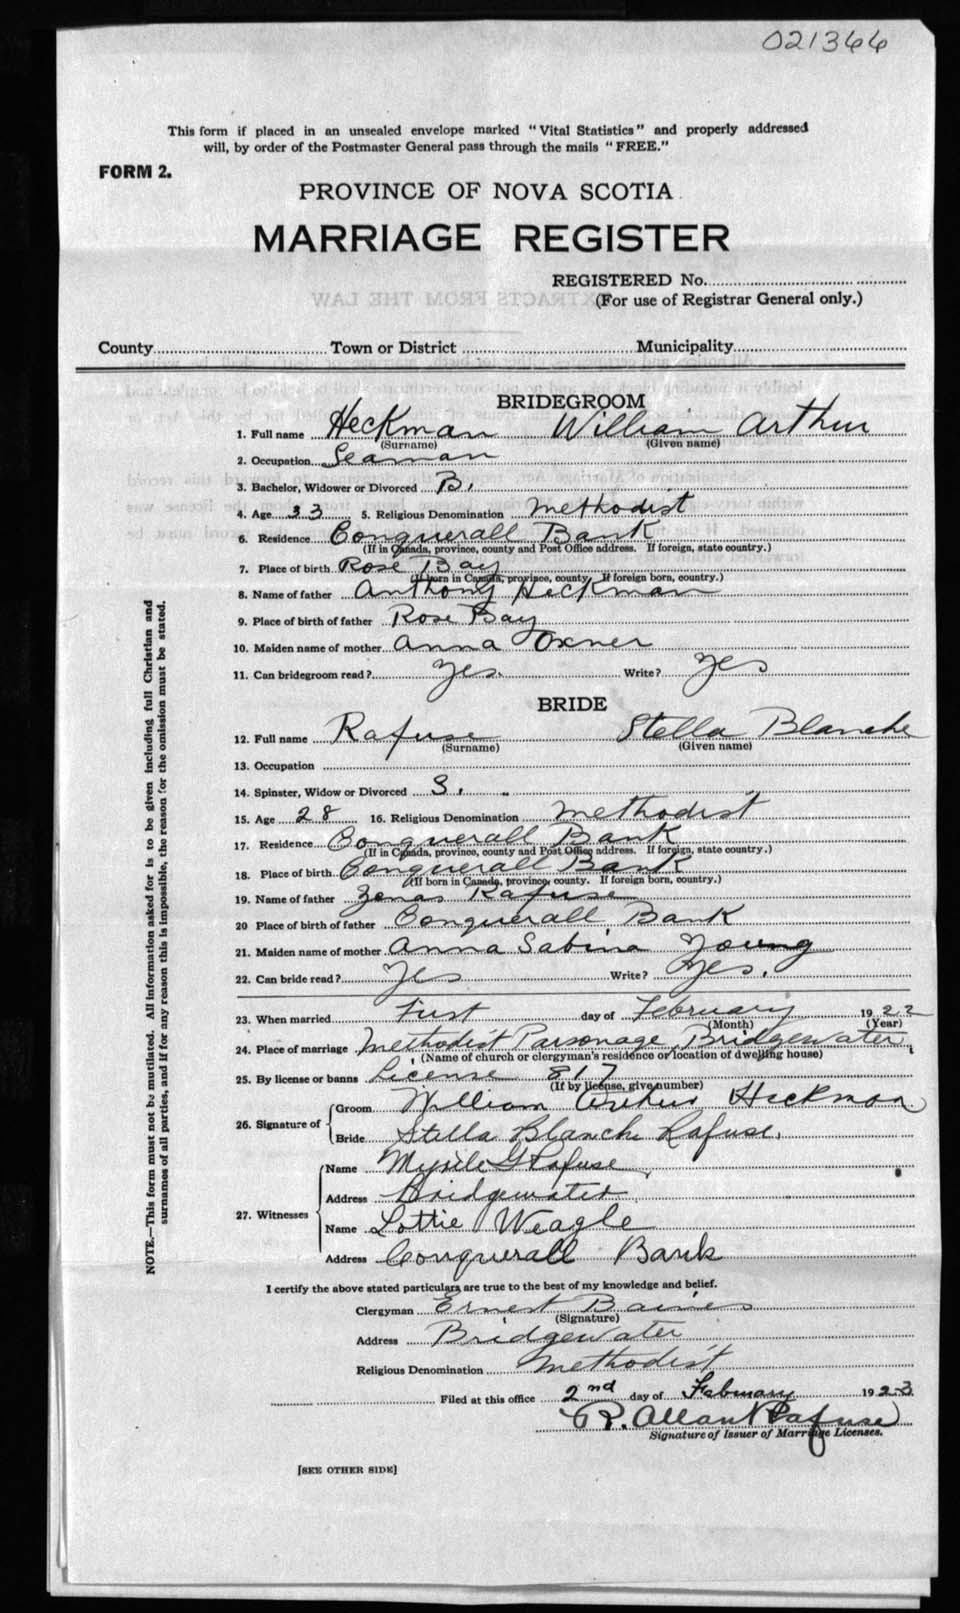 021366
This form if placed in an unsealed envelope marked "Vital Statistics" and properly addressed
will, by order of the Postmaster General pass through the mails "FREE."
FORM 2.
PROVINCE OF NOVA SCOTIA
MARRIAGE REGISTER
REGISTERED No.
(For use of Registrar General only.)
County Town or District Municipality
BRIDEGROOM
1. Full name Heckman William Arthur
(Surname) (Given name)
2. Occupation Seaman
3. Bachelor, Widower or Divorced B.
4. Age 33 5. Religious Denomination Methodist
6. Residence Conquerall Bank
(If in Canada, province, county and Post Office address. If foreign, state country.)
7. Place of birth Rose Bay
(If born in Canada, province, county. If foreign born, country.)
8. Name of father Anthony Heckman
9. Place of birth of father Rose Bay
10. Maiden name of mother Anna Oxner
11. Can bridegroom read? Yes. Write? Yes
BRIDE
12. Full name Rafuse Stella Blanche
(Surname) (Given name)
13. Occupation
14. Spinster, Widow or Divorced S.
15. Age 28 16. Religious Denomination Methodist
17. Residence Conquerall Bank
(If in Canada, province, county and Post Office address. If foreign, state country.)
18. Place of birth Conquerall Bank
(If born in Canada, province, county. If foreign born, country.)
19. Name of father Zenas Rafuse
20 Place of birth of father Conquerall Bank
21. Maiden name of mother Anna Sabina Young
22. Can bride read? Yes Write? Yes.
23. When married First day of February 1922
(Month) (Year)
24. Place of marriage Methodist Parsonage, Bridgewater
(Name of church or clergyman's residence or location of dwelling house)
25. By license or banns License 817
(If by license, give number)
26. Signature of Groom William Arthur Heckman
Bride Stella Blanche Rafuse.
27. Witnesses Name G Rafuse
Address Bridgewater
Name Lottie Weagle
Address Conquerall Bank
I certify the above stated particulars are true to the best of my knowledge and belief.
Clergyman Ernest Baines
(Signature)
Address Bridgewater
Religious Denomination Methodist
Filed at this office 2nd day of February 1923
R. Allan Rafuse
Signature of Issuer of Marriage Licenses.
[SEE OTHER SIDE]
NOTE.—This form must not be mutilated. All information asked for is to be given including full Christian and
surnames of all parties, and if for any reason this is impossible, the reason for the omission must be stated.